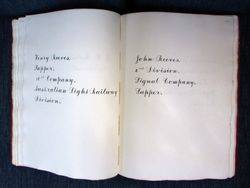 Reeves.
Sapper.
Company.
Australian Light Railway
Division.
John Reeves.
2nd Division.
Signal Company.
Sapper.